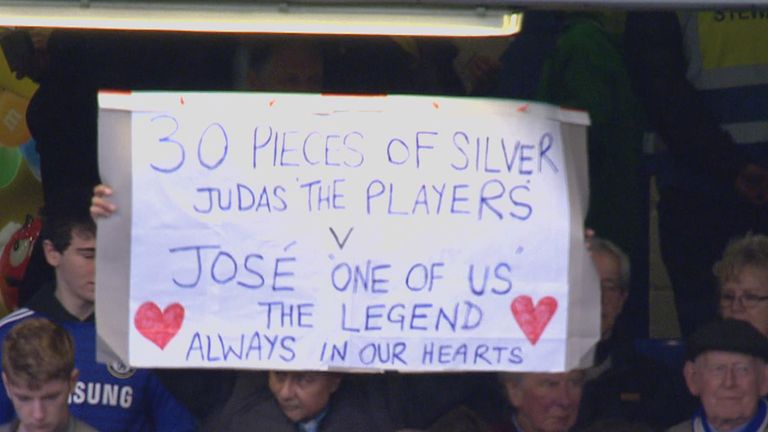 STEW
30 PIECES OF SILVER
JUDAS 'THE PLAYERS'
V
JOSÉ 'ONE OF US'
THE LEGEND
ALWAYS IN OUR HEARTS
SAMSUNG